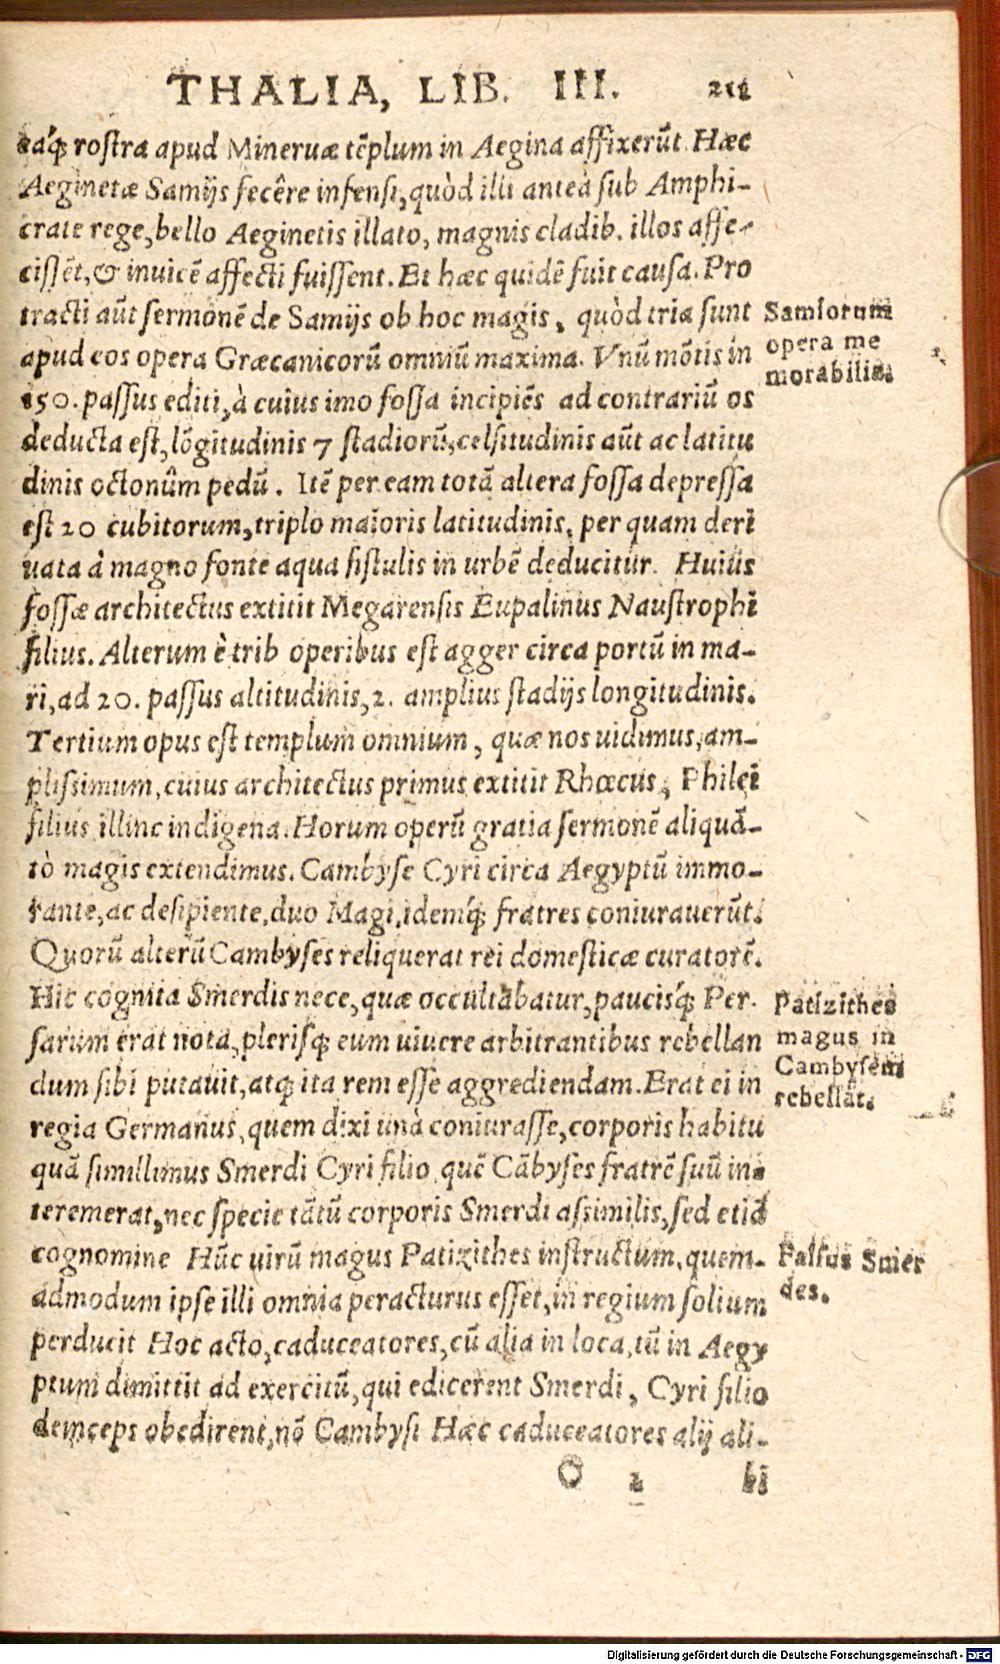 THALIA, LIB. III. 211
eaq́; rostra apud Mineruæ tẽplum in Aegina affixerũt. Hæc
Aeginetæ Samijs fecêre infensi, quòd illi anteà sub Amphi-
crate rege, bello Aeginetis illato, magnis cladib. illos affe-
cissẽt, & inuicẽ affecti fuissent. Et hæc quidẽ fuit causa. Pro
tracti aũt sermonẽ de Samijs ob hoc magis, quòd tria sunt
Samiorum
apud eos opera Græcanicorũ omniũ maxima. Vnũ mõtis in
opera me
150. passus editi, à cuius imo fossa incipiẽs ad contrariũ os
morabilia.
deducta est, lõgitudinis 7 stadiorũ, celsitudinis aũt ac latitu
dinis octonûm pedũ. Itẽ per eam totã altera fossa depressa
est 20 cubitorum, triplo maioris latitudinis, per quam deri
uata à magno fonte aqua fistulis in urbẽ deducitur. Huius
fossæ architectus extitit Megarensis Eupalinus Naustrophi
filius. Alterum è trib operibus est agger circa portũ in ma-
ri, ad 20. passus altitudinis, 2. amplius stadijs longitudinis.
Tertium opus est templum omnium, quæ nos uidimus, am-
plissimum, cuius architectus primus extitit Rhœcus, Philei
filius illinc indigena. Horum operũ gratia sermonẽ aliquã-
tò magis extendimus. Cambyse Cyri circa Aegyptũ immo-
rante, ac desipiente, duo Magi, idemq́; fratres coniurauerũt.
Quorũ alterũ Cambyses reliquerat rei domesticæ curatorẽ.
Hic cognita Smerdis nece, quæ occultabatur, paucisq́; Per-
Patizithes
sarum erat nota, plerisq; eum uiuere arbitrantibus rebellan
magus in
dum sibi putauit, atq; ita rem esse aggrediendam. Erat ei in
Cambysem
rebellãt.
regia Germanus, quem dixi unà coniurasse, corporis habitu
quã simillimus Smerdi Cyri filio, quẽ Cãbyses fratrẽ suũ in-
teremerat, nec specie tãtũ corporis Smerdi assimilis, sed etiã
cognomine Hũc uirũ magus Patizithes instructum, quem-
Falsus Smer
admodum ipse illi omnia peracturus esset, in regium solium
des.
perducit Hoc acto, caduceatores, cũ alia in loca, tũ in Aegy
ptum dimittit ad exercitũ, qui edicerent Smerdi, Cyri filio
deinceps obedirent, nõ Cambysi Hæc caduceatores alij ali-
O 2 bi
Digitalisierung gefördert durch die Deutsche Forschungsgemeinschaft - DFG